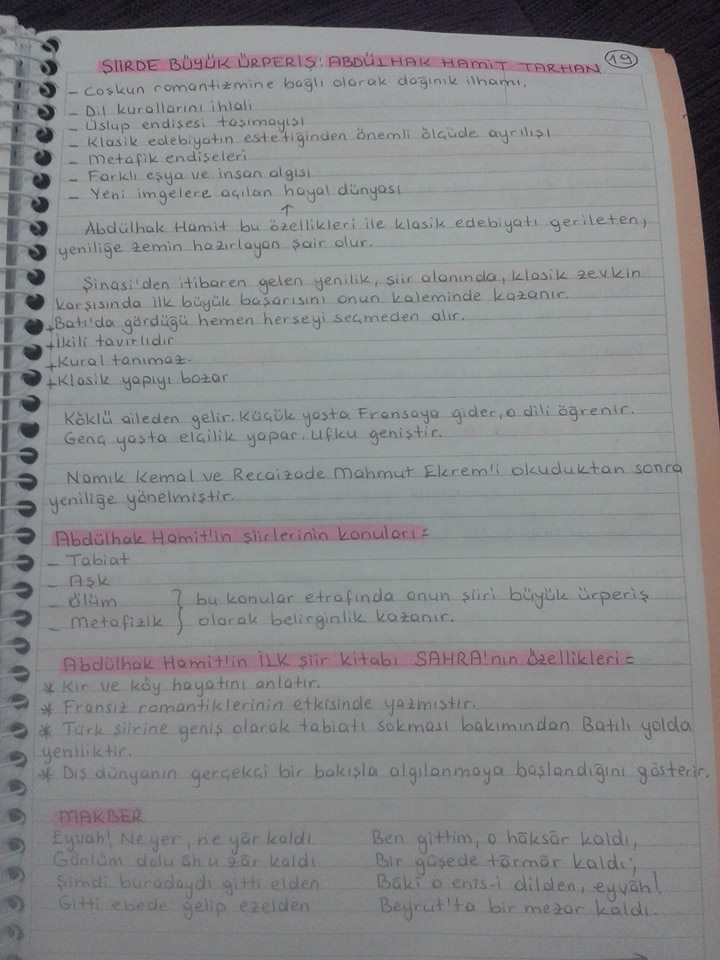 ŞİİRDE BÜYÜK ÜRPERİŞ: ABDÜLHAK HAMİT TARHAN
19
- Coşkun romantizmine bağlı olarak dağınık ilhamı,
- Dil kurallarını ihlali
- Üslup endişesi taşımayışı
- Klasik edebiyatın estetiğinden önemli ölçüde ayrılışı
- Metafik endişeleri
- Farklı eşya ve insan algısı
- Yeni imgelere açılan hayal dünyası
↑
Abdülhak Hamit bu özellikleri ile klasik edebiyatı gerileten,
yeniliğe zemin hazırlayan şair olur.
Şinasi'den itibaren gelen yenilik, şiir alanında, klasik zevkin
karşısında ilk büyük başarısını onun kaleminde kazanır.
+Batı'da gördüğü hemen herşeyi seçmeden alır.
+İkili tavırlıdır
+Kural tanımaz.
+Klasik yapıyı bozar
Köklü aileden gelir. Küçük yaşta Fransaya gider, o dili öğrenir.
Genç yaşta elçilik yapar. Ufku geniştir.
Namık Kemal ve Recaizade Mahmut Ekrem'i okuduktan sonra
yeniliğe yönelmiştir.
Abdülhak Hamit'in şiirlerinin konuları =
- Tabiat
- Aşk
- Ölüm } bu konular etrafında onun şiiri büyük ürperiş
- Metafizik } olarak belirginlik kazanır.
Abdülhak Hamit'in İLK şiir kitabı SAHRA'nın özellikleri =
* Kır ve köy hayatını anlatır.
* Fransız romantiklerinin etkisinde yazmıştır.
* Türk şiirine geniş olarak tabiatı sokması bakımından Batılı yolda
yeniliktir.
* Dış dünyanın gerçekçi bir bakışla algılanmaya başlandığını gösterir.
MAKBER
Eyvah! Ne yer, ne yâr kaldı
Gönlüm dolu âh u zâr kaldı
Şimdi buradaydı gitti elden
Gitti ebede gelip ezelden
Ben gittim, o hâksâr kaldı,
Bir gûşede târmâr kaldı;
Bâki o enîs-i dilden, eyvâh!
Beyrut'ta bir mezar kaldı.